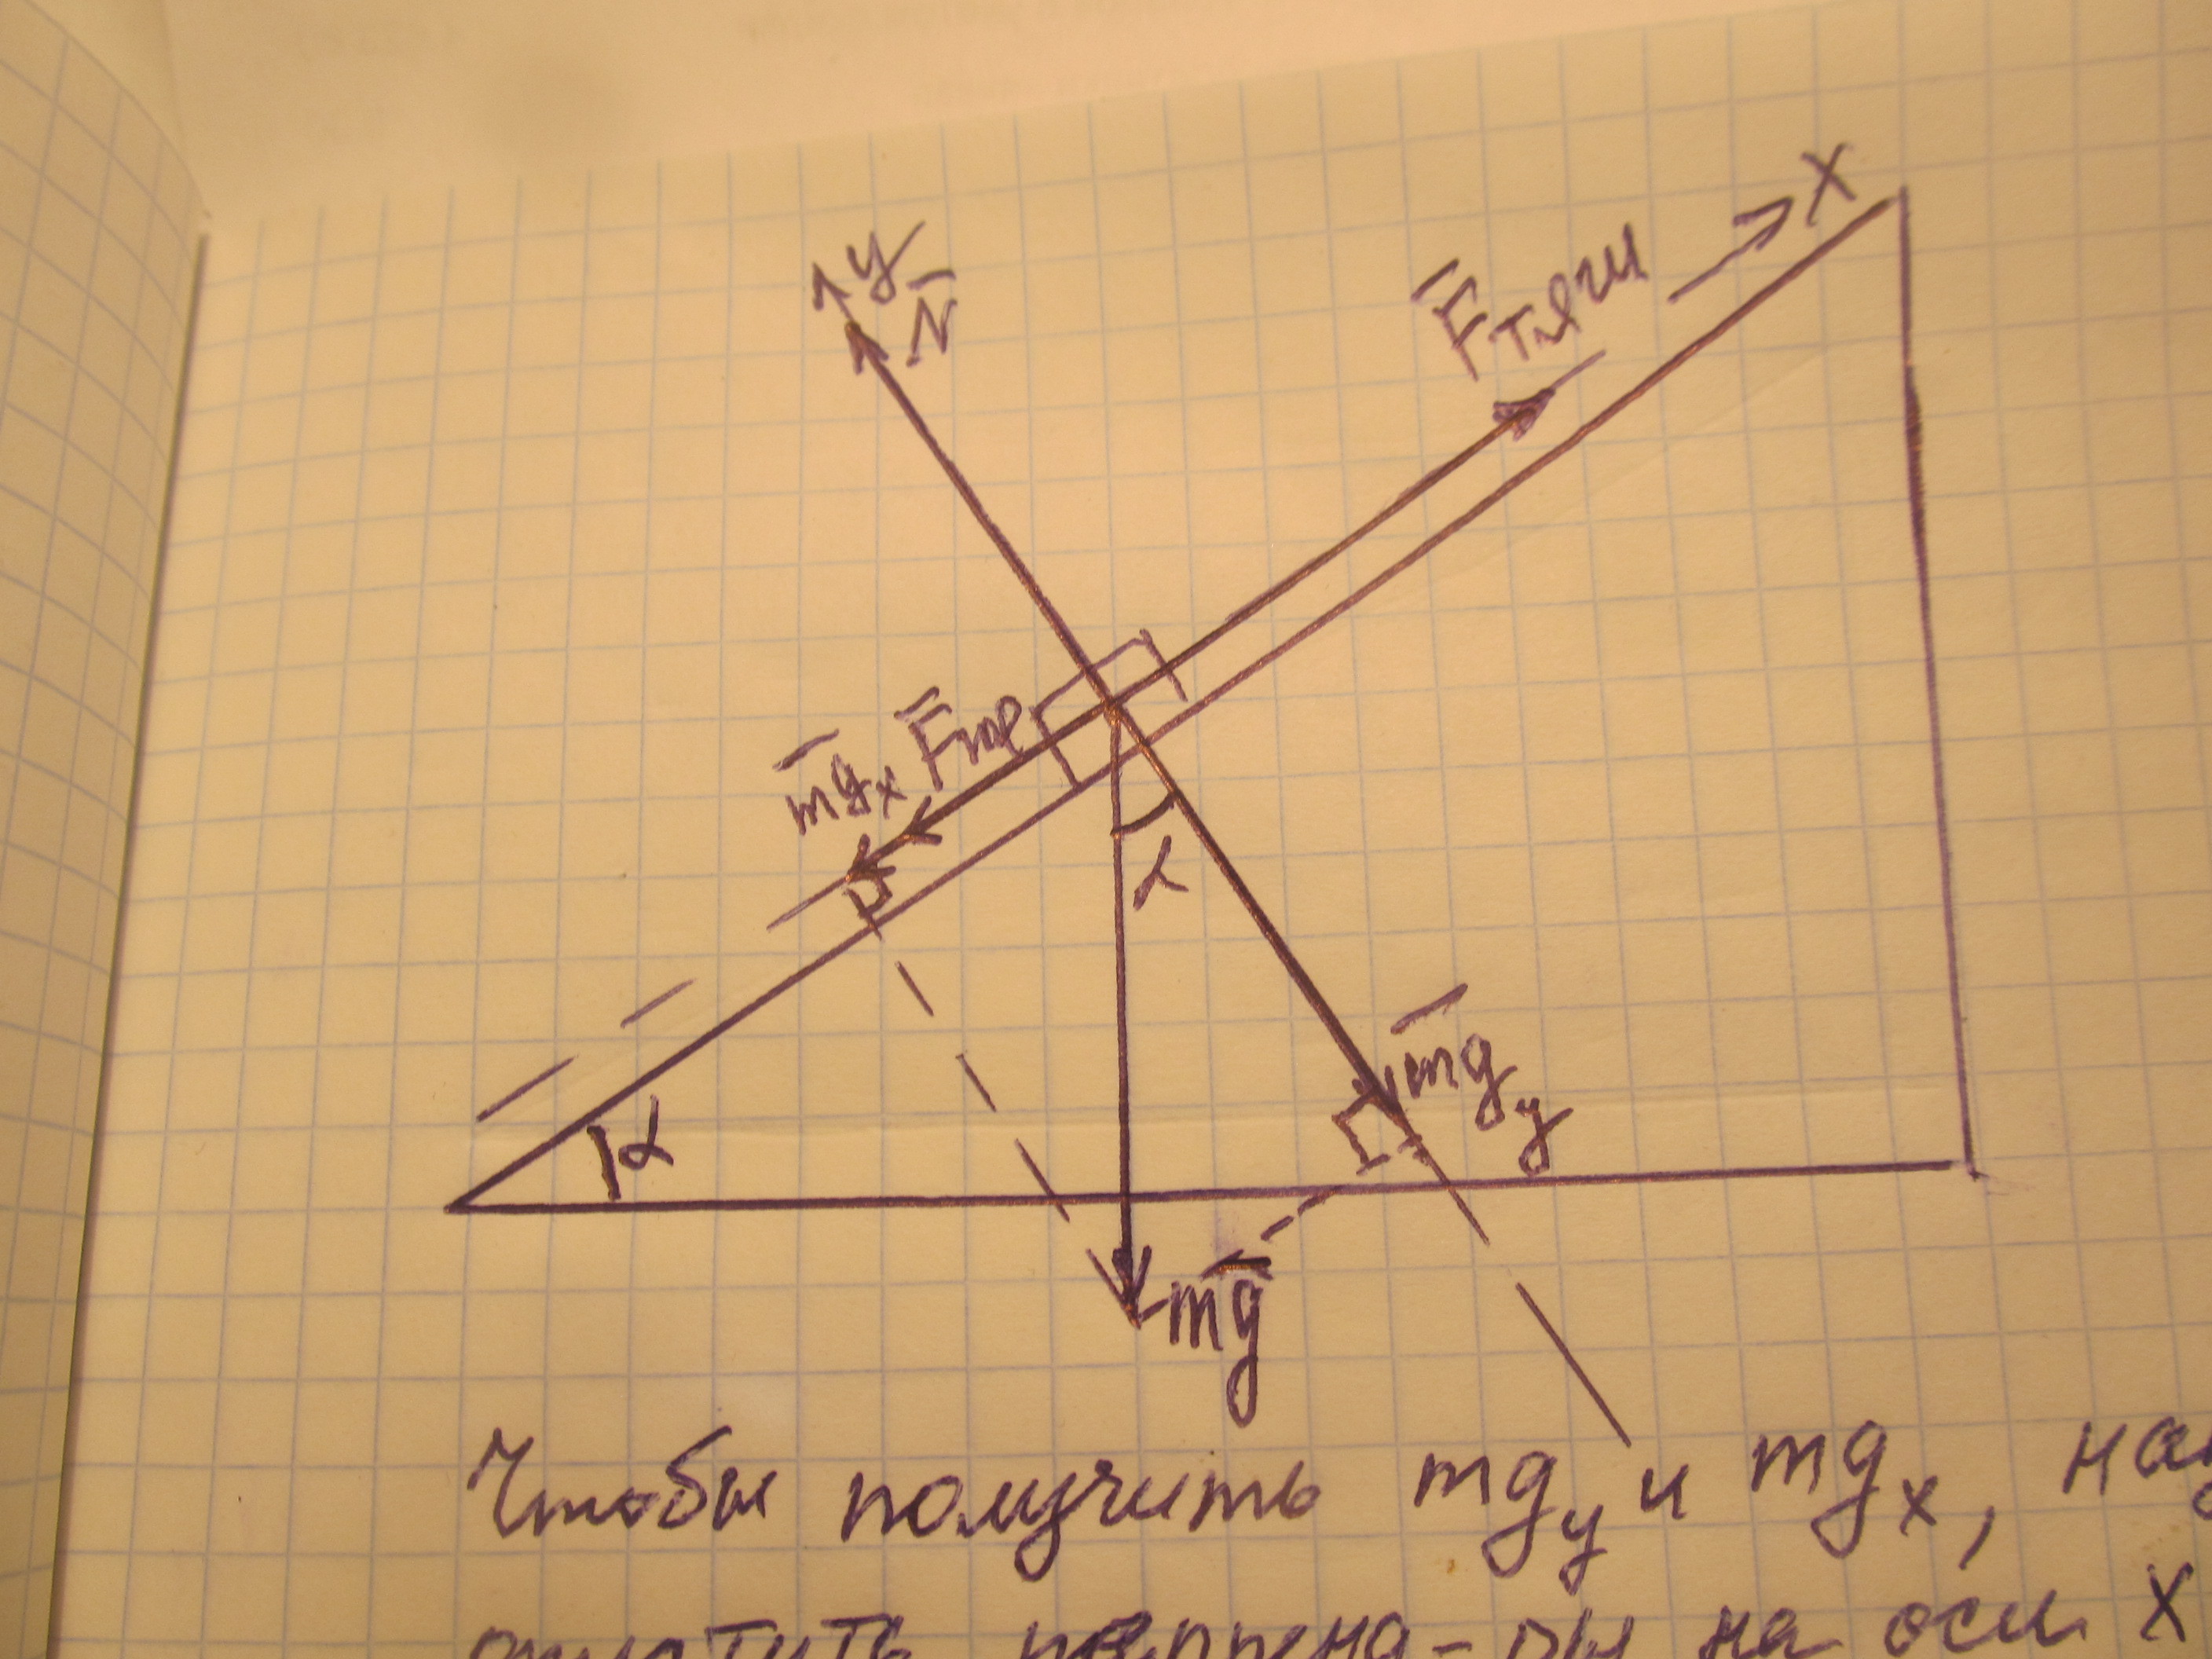 y
N̅
X
F̅тяги
m̅gₓ F̅тр
α
α
m̅g_y
mg̅
Чтобы получить mg_y и mgₓ, на
опустить на оси X